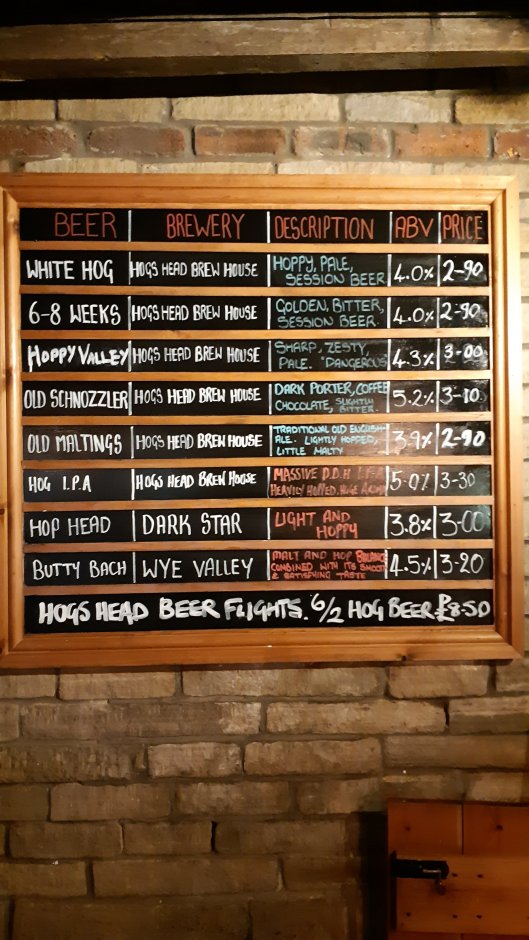 BEER BREWERY DESCRIPTION ABV PRICE
WHITE HOG HOGS HEAD BREW HOUSE HOPPY, PALE, 4.0% 2-90
SESSION BEER
6-8 WEEKS HOGS HEAD BREW HOUSE GOLDEN, BITTER, 4.0% 2-90
SESSION BEER.
HOPPY VALLEY HOGS HEAD BREW HOUSE SHARP, ZESTY, 4.3% 3-00
PALE. "DANGEROUS
OLD SCHNOZZLER HOGS HEAD BREW HOUSE DARK PORTER, COFFEE 5.2% 3-10
CHOCOLATE, SLIGHTLY BITTER.
OLD MALTINGS HOGS HEAD BREW HOUSE TRADITIONAL OLD ENGLISH 3.9% 2-90
ALE. LIGHTLY HOPPED,
LITTLE MALTY
HOG I.P.A HOGS HEAD BREW HOUSE MASSIVE D.D.H I.P.A 5.0% 3-30
HEAVILY HOPPED, HUGE AROMA
HOP HEAD DARK STAR LIGHT AND 3.8% 3-00
HOPPY
BUTTY BACH WYE VALLEY MALT AND HOP BALANCE 4.5% 3-20
COMBINED WITH ITS SMOOTH
& SATISFYING TASTE
HOGS HEAD BEER FLIGHTS. 6/2 HOG BEER £8.50